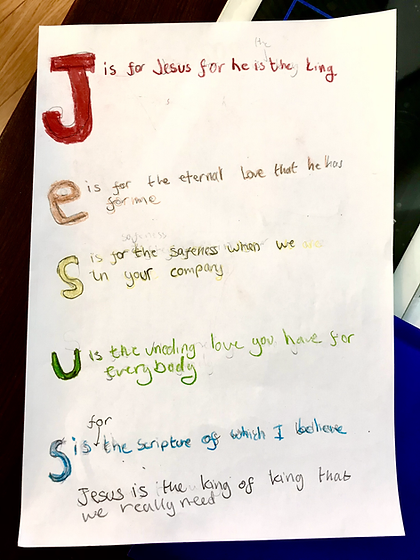 J is for Jesus for he is the king.
e is for the eternal love that he has
for me
S is for the safeness when we are
in your company
U is the unending love you have for
everybody
for
S is the scripture of which I believe
Jesus is the king of king that
we really need